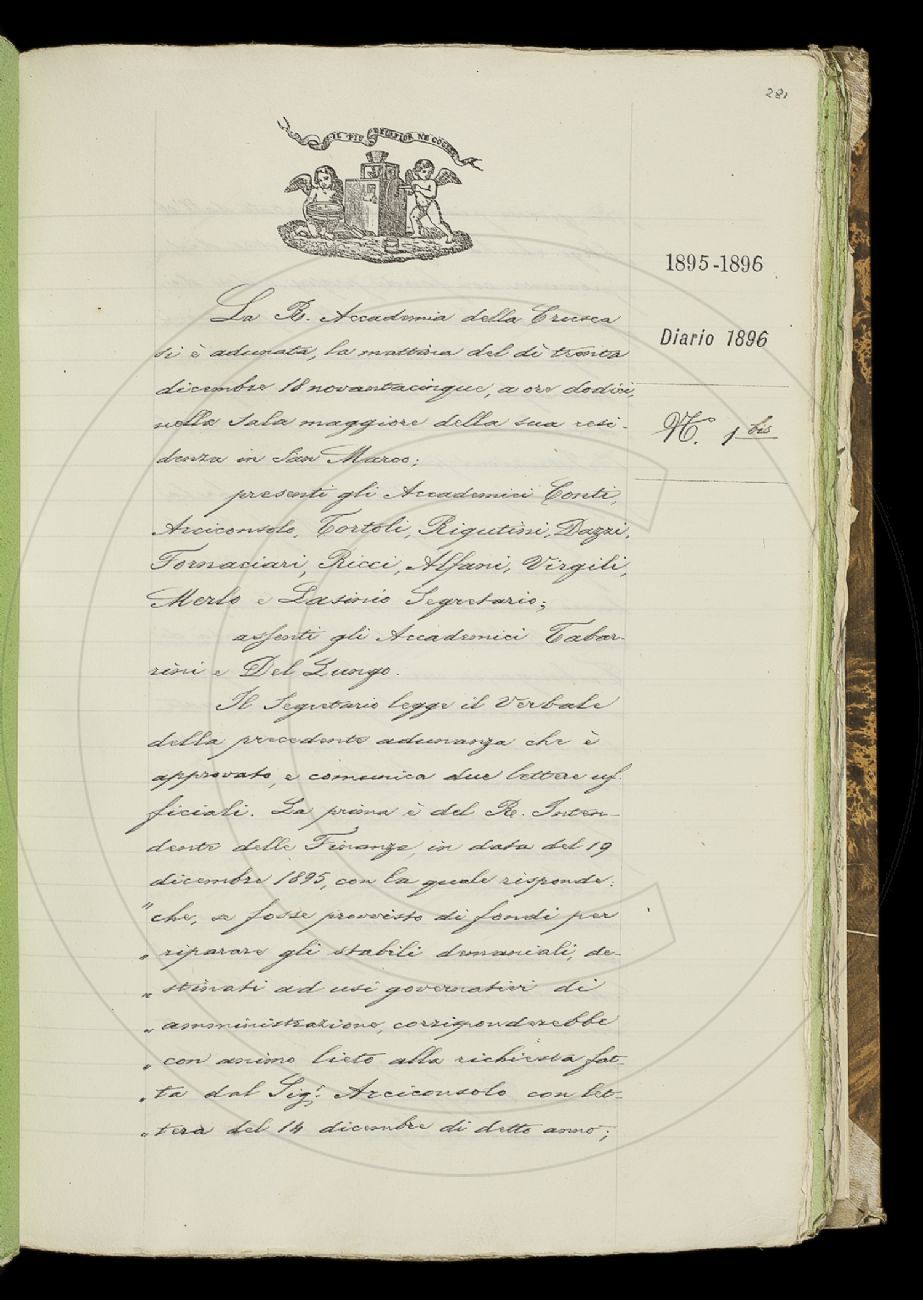 281
IL PIÙ BEL FIOR NE COGLIE
1895-1896
Diario 1896
N.° 1 bis
La R. Accademia della Crusca
si è adunata, la mattina del dì trenta
dicembre 18 novantacinque, a ore dodici,
nella Sala maggiore della sua resi-
denza in San Marco;
presenti gli Accademici Conti,
Arciconsolo, Tortoli, Rigutini, Dazzi,
Fornaciari, Ricci, Alfani, Virgili,
Merlo e Lasinio Segretario;
assenti gli Accademici Tabar-
rini e Del Lungo.
Il Segretario legge il Verbale
della precedente adunanza che è
approvato, e comunica due lettere uf-
ficiali. La prima è del R. Inten-
dente delle Finanze, in data del 19
dicembre 1895, con la quale risponde:
"che, se fosse provvisto di fondi per
" riparare gli stabili demaniali, de-
" stinati ad usi governativi di
" amministrazione, corrisponderebbe
" con animo lieto alla richiesta fat-
" ta dal Sig.r Arciconsolo con let-
" tera del 14 dicembre di detto anno;